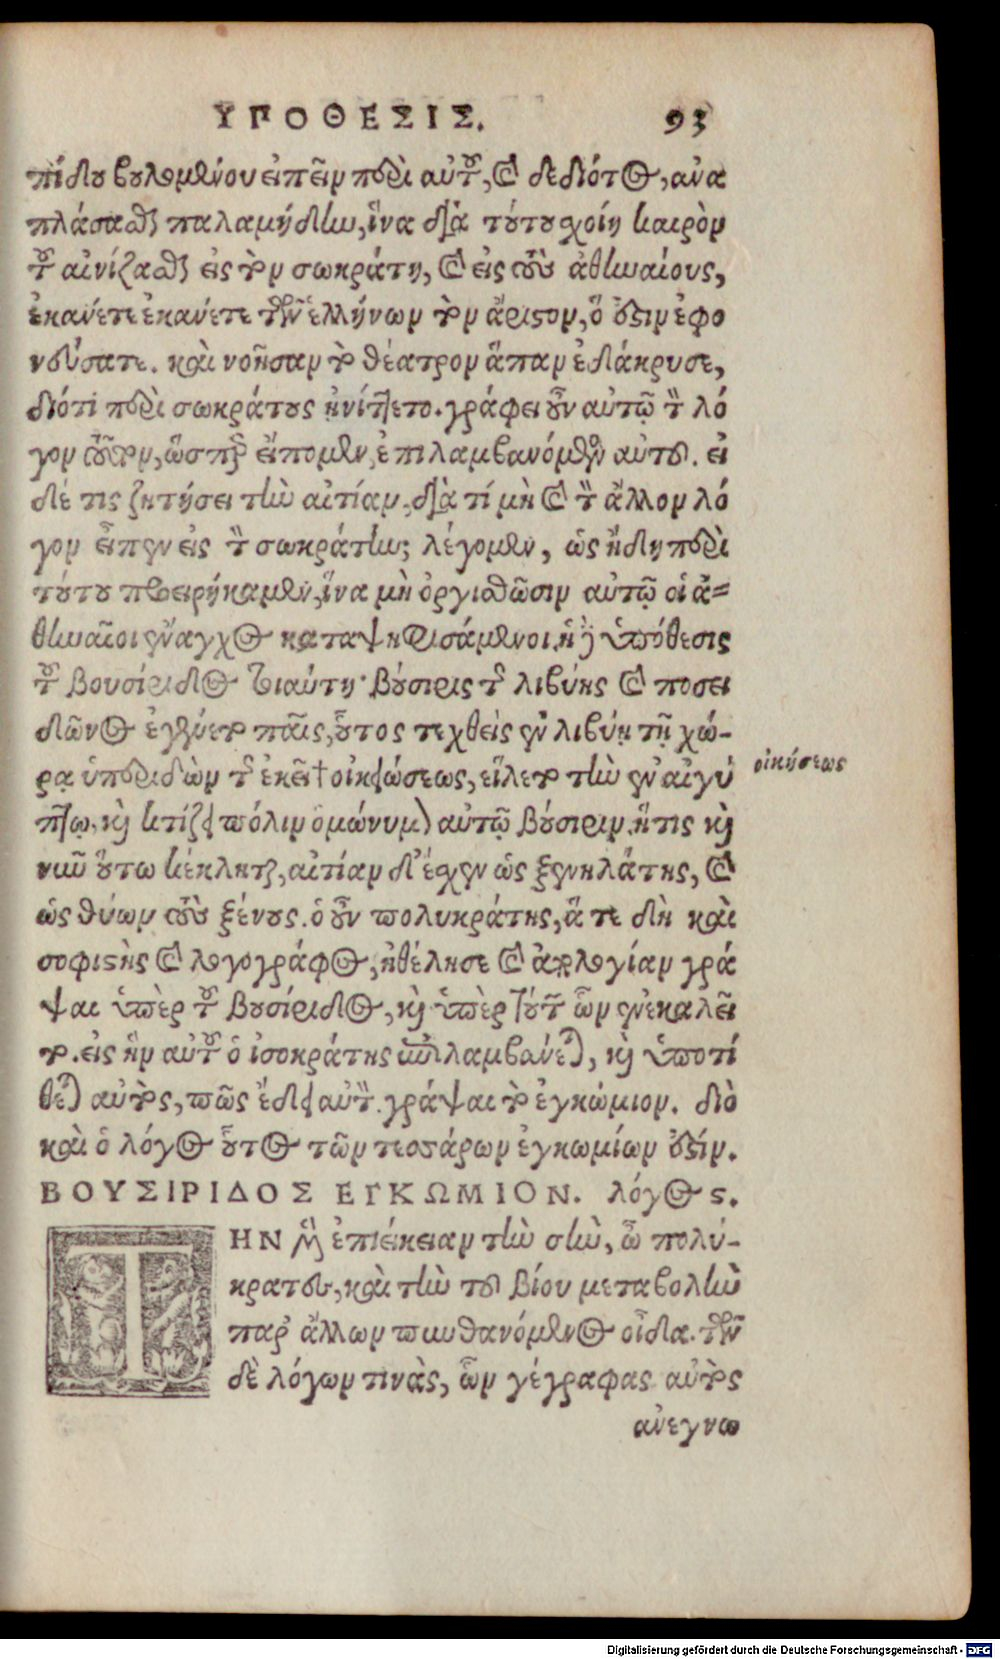 ΥΠΟΘΕΣΙΣ. 93
πίδου βουλομένου εἰπεῖν περὶ αὐτοῦ, καὶ δεδιότος, ἀνα
πλάσασθαι παλαμήδην, ἵνα διὰ τούτου σχοίη καιρὸν
τοῦ αἰνίξασθαι εἰς τὸν σωκράτη, καὶ εἰς τοὺς ἀθηναίους,
ἐκανέτε ἐκανέτε τῶν ἑλλήνων τὸν ἄριστον, ὅ ἐστιν ἐφο
νεύσατε. καὶ νοῆσαν τὸ θέατρον ἅπαν ἐδάκρυσε,
διότι περὶ σωκράτους ᾐνίττετο. γράφει οὖν αὐτῷ τὸν λό
γον τοῦτον, ὥσπερ εἴπομεν, ἐπιλαμβανόμενος αὐτοῦ. εἰ
δέ τις ζητήσει τὴν αἰτίαν, διὰ τί μὴ καὶ τὸν ἄλλον λό
γον εἶπεν εἰς τὸν σωκράτην; λέγομεν, ὡς ἤδη περὶ
τούτου προειρήκαμεν, ἵνα μὴ ὀργισθῶσιν αὐτῷ οἱ ἀ=
θηναῖοι ἔναγχος καταψηφισάμενοι. ἡ δὲ ὑπόθεσις
τοῦ βουσίριδος τοιαύτη· βούσιρις τῆς λιβύης καὶ ποσει
δῶνος ἐγένετο παῖς, οὗτος τεχθεὶς ἐν λιβύῃ τῇ χώ-
ρᾳ ὑπεριδὼν τῆς ἐκεῖ †οἰκειώσεως, εἵλετο τὴν ἐν αἰγύ
πτῳ, καὶ κτίζει πόλιν ὁμώνυμον αὐτῷ βούσιριν, ἥτις καὶ
νῦν οὕτω κέκληται, αἰτίαν δ' ἔχεν ὡς ξενηλάτης, καὶ
ὡς θύων τοὺς ξένους. ὁ οὖν πολυκράτης, ἅ τε δὴ καὶ
σοφιστὴς καὶ λογογράφος, ἠθέλησε καὶ ἀπολογίαν γρά
ψαι ὑπὲρ τοῦ βουσίριδος, καὶ ὑπὲρ τούτων ὧν ἐνεκαλεῖ
το. εἰς ἣν αὐτοῦ ὁ ἰσοκράτης ἐπιλαμβάνεται, καὶ ὑποτί
θεται αὐτὸς, πῶς ἔδει αὐτὸν γράψαι τὸ ἐγκώμιον. διὸ
καὶ ὁ λόγος οὗτος τῶν τεσσάρων ἐγκωμίων ἐστίν.
οἰκήσεως
ΒΟΥΣΙΡΙΔΟΣ ΕΓΚΩΜΙΟΝ. λόγος ϛ.
ΤΗΝ μὲν ἐπιείκειαν τὴν σὴν, ὦ πολύ-
κρατες, καὶ τὴν τοῦ βίου μεταβολὴν
παρ' ἄλλων πυνθανόμενος οἶδα. τῶν
δὲ λόγων τινὰς, ὧν γέγραφας αὐτὸς
ἀνεγνω
Digitalisierung gefördert durch die Deutsche Forschungsgemeinschaft - DFG